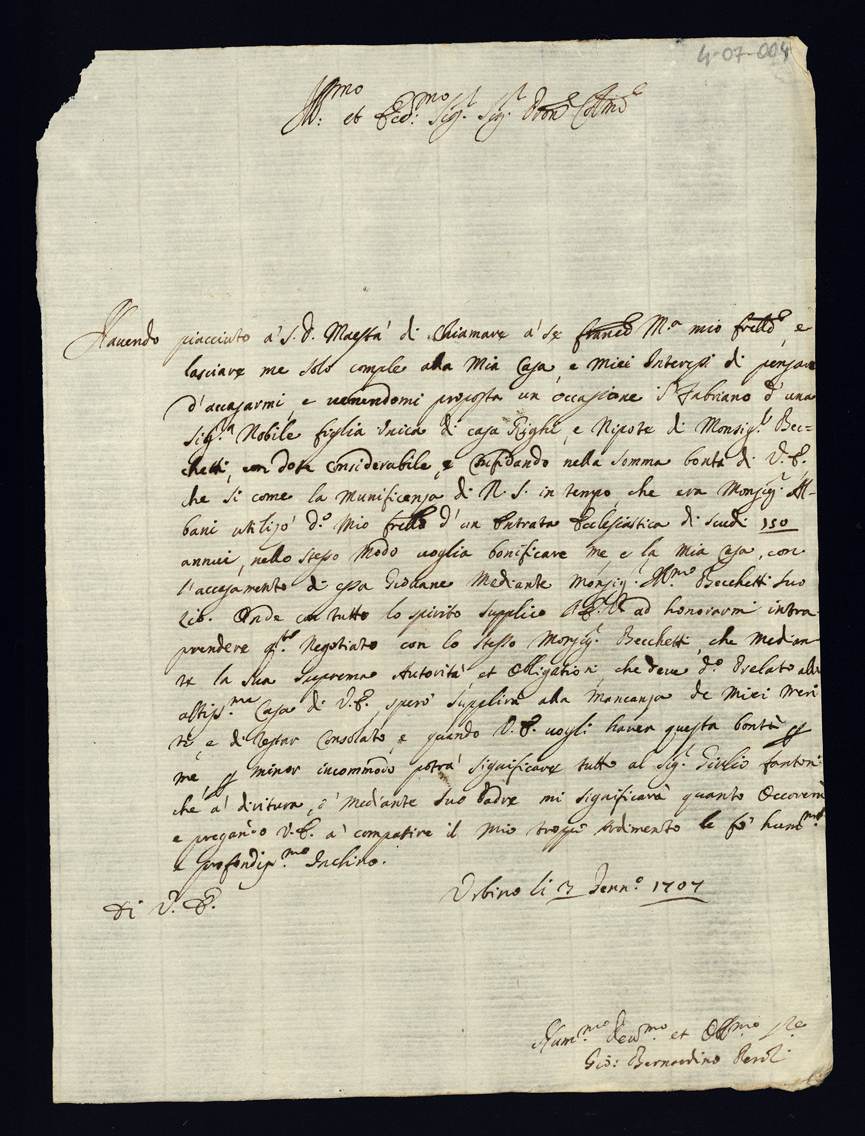 4-07-004
Ill:mo et Ecc:mo Sig.r Sig.r Pron.e Col.mo
Havendo piacciuto à S. D. Maestà di Chiamare à se franco M.a mio frello, e
lasciare me solo comple alla Mia Casa e Miei Interessi di pensare
d'accasarmi, e venendomi proposta un'occasione in Fabriano d'una
Sig.ra Nobile figlia Unica di casa Righi, e Nipote di Monsig.r Bec=
chetti, con dote Considerabile, e Confidando nella somma bontà di V. E.
che si come la Munificenza di N. S. in tempo che era Monsig.r Al-
bani utilizò d.o Mio frello d'un Entrata Ecclesiastica di scudi 150
annui, nello stesso Modo voglia bonificare me e la Mia Casa, con
l'accasamento di essa Giovane Mediante Monsig.r Ill.mo Becchetti suo
Zio. Onde con tutto lo spirito supplico V. E. ad honorarmi intra
prendere q.to Negotiato con lo stesso Monsig.r Becchetti, che Median
te la sua suprema Autorità, et Obligationi che deve d.o Prelato alla
altiss.ma Casa di V. E. spero supplirà alla Mancanza de Miei Meri
ti, e di restar Consolato, e quando V. E. vogli haver questa bontà p
me, p minor incommodo potrà significare tutto al Sig.r Giulio Fantoni
che à dirittura, ò Mediante suo Padre mi significarà quanto Occorerà
e pregando V. E. à compatire il Mio troppo Ardimento le fò hum.mo
e profondiss.mo Inchino.
Di V. E. Urbino li 3 Genn.o 1707
Hum.mo Dev.mo et Obl.mo S.re
Gio: Bernardino Peroli